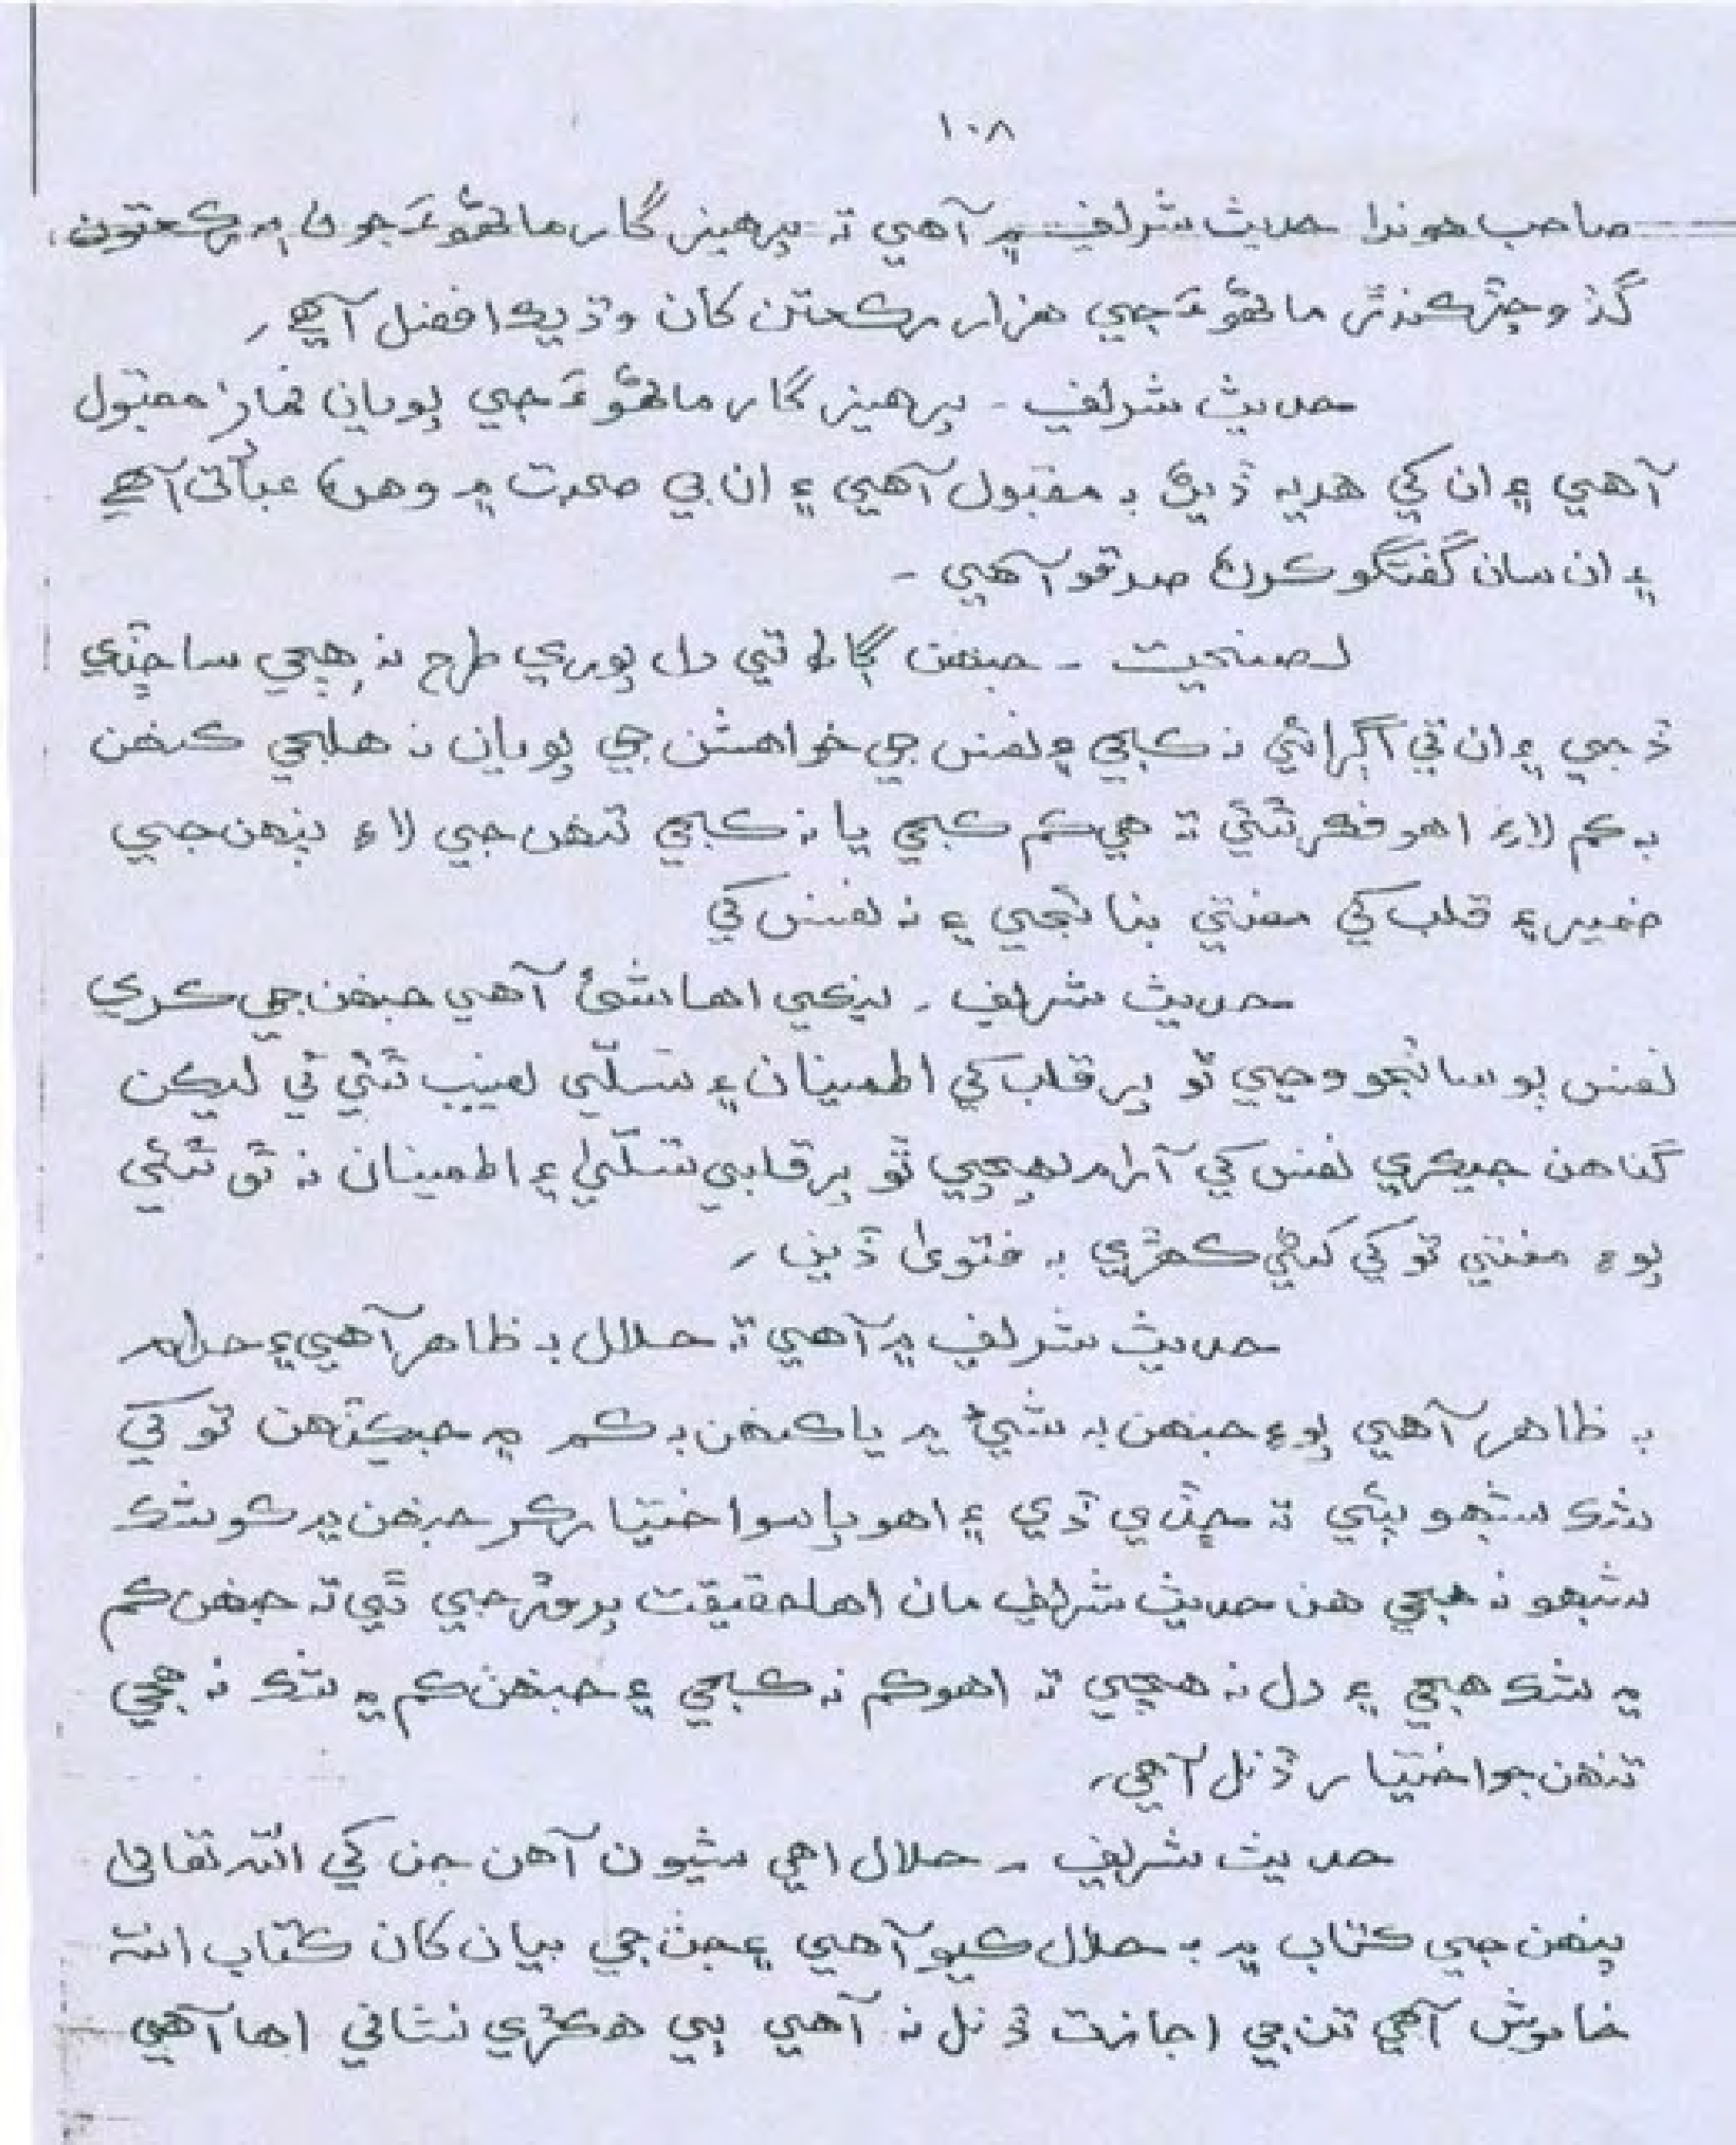 ١٠٨
صاحب هوندا حديث شريف ۾ آهي ته پرهيزگار ماڻهوءَ جون ٻه رڪعتون
گڏ وچڙ ڪندڙ ماڻهوءَ جي هزار رڪعتن کان وڌيڪ افضل آهي۔
حديث شريف ۔ پرهيزگار ماڻهوءَ جي پويان نماز مقبول
آهي ۽ ان کي هديه ڏيڻ به مقبول آهي ۽ ان جي صحبت ۾ وهڻ عبادت آهي
۽ ان سان گفتگو ڪرڻ صدقو آهي ۔
نصيحت ۔ جنهن ڳالهه تي دل پوري طرح نه ٺهجي سا ڇڏي
ڏجي ۽ ان تي اڳرائي نه ڪجي ۽ نفس جي خواهشن جي پويان نه هلجي ڪنهن
به ڪم لاءِ اهو فڪر ٿئي ته هي ڪم ڪجي يا نه ڪجي تنهن جي لاءِ پنهن جي
ضمير ۽ قلب کي مفتي بنائجي ۽ نه نفس کي
حديث شريف ۔ نيڪي اها شئ آهي جنهن جي ڪري
نفس پوسائجو وڃي ٿو پر قلب کي اطمينان ۽ تسلّي نصيب ٿئي ٿي ليڪن
گناهن جيڪري نفس کي آرام پهچي ٿو پر قلبي تسلّي ۽ اطمينان نه ٿو ٿئي
پوءِ مفتي توکي کڻي ڪهڙي به فتويٰ ڏين ۔
حديث شريف ۾ آهي ته حلال به ظاهر آهي ۽ حرام
به ظاهر آهي پوءِ جنهن به شيءِ ۾ يا ڪنهن به ڪم ۾ جيڪڏهن توکي
شڪ شبهو پئي ته ڇڏي ڏي ۽ اهو پاسو اختيار ڪر جنهن ۾ ڪو شڪ
شبهو نه هجي هن حديث شريف مان اها حقيقت پروڙجي ٿي ته جنهن ڪم
۾ شڪ هجي ۽ دل نه هڄي ته اهو ڪم نه ڪجي ۽ جنهن ڪم ۾ شڪ نه هجي
تنهن جو اختيار ڏنل آهي۔
حديث شريف ۔ حلال اهي شيون آهن جن کي الله تعاليٰ
پنهن جي ڪتاب ۾ به حلال ڪيو آهي ۽ جن جي بيان کان ڪتاب الله
خاموش آهي تن جي اجازت ڏنل نه آهي ٻي هڪڙي نشاني اها آهي